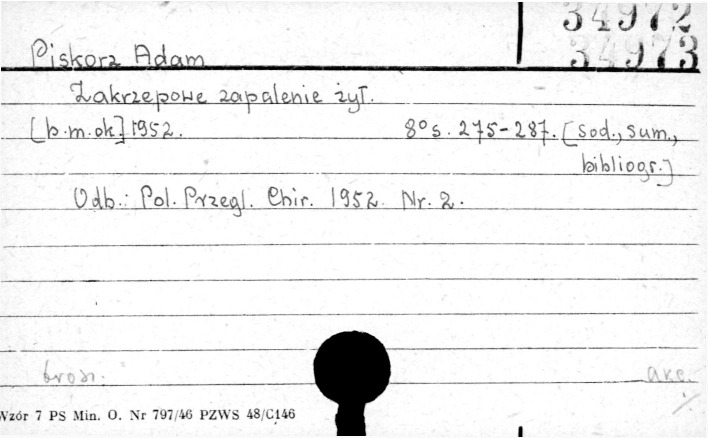 34972
34973
Piskorz Adam
Zakrzepowe zapalenie żył.
[b.m.ok] 1952. 8° s. 275-287. [sod., sum.,
bibliogr.]
Odb.: Pol. Przegl. Chir. 1952. Nr. 2.
brosz. akc.
Wzór 7 PS Min. O. Nr 797/46 PZWS 48/C146